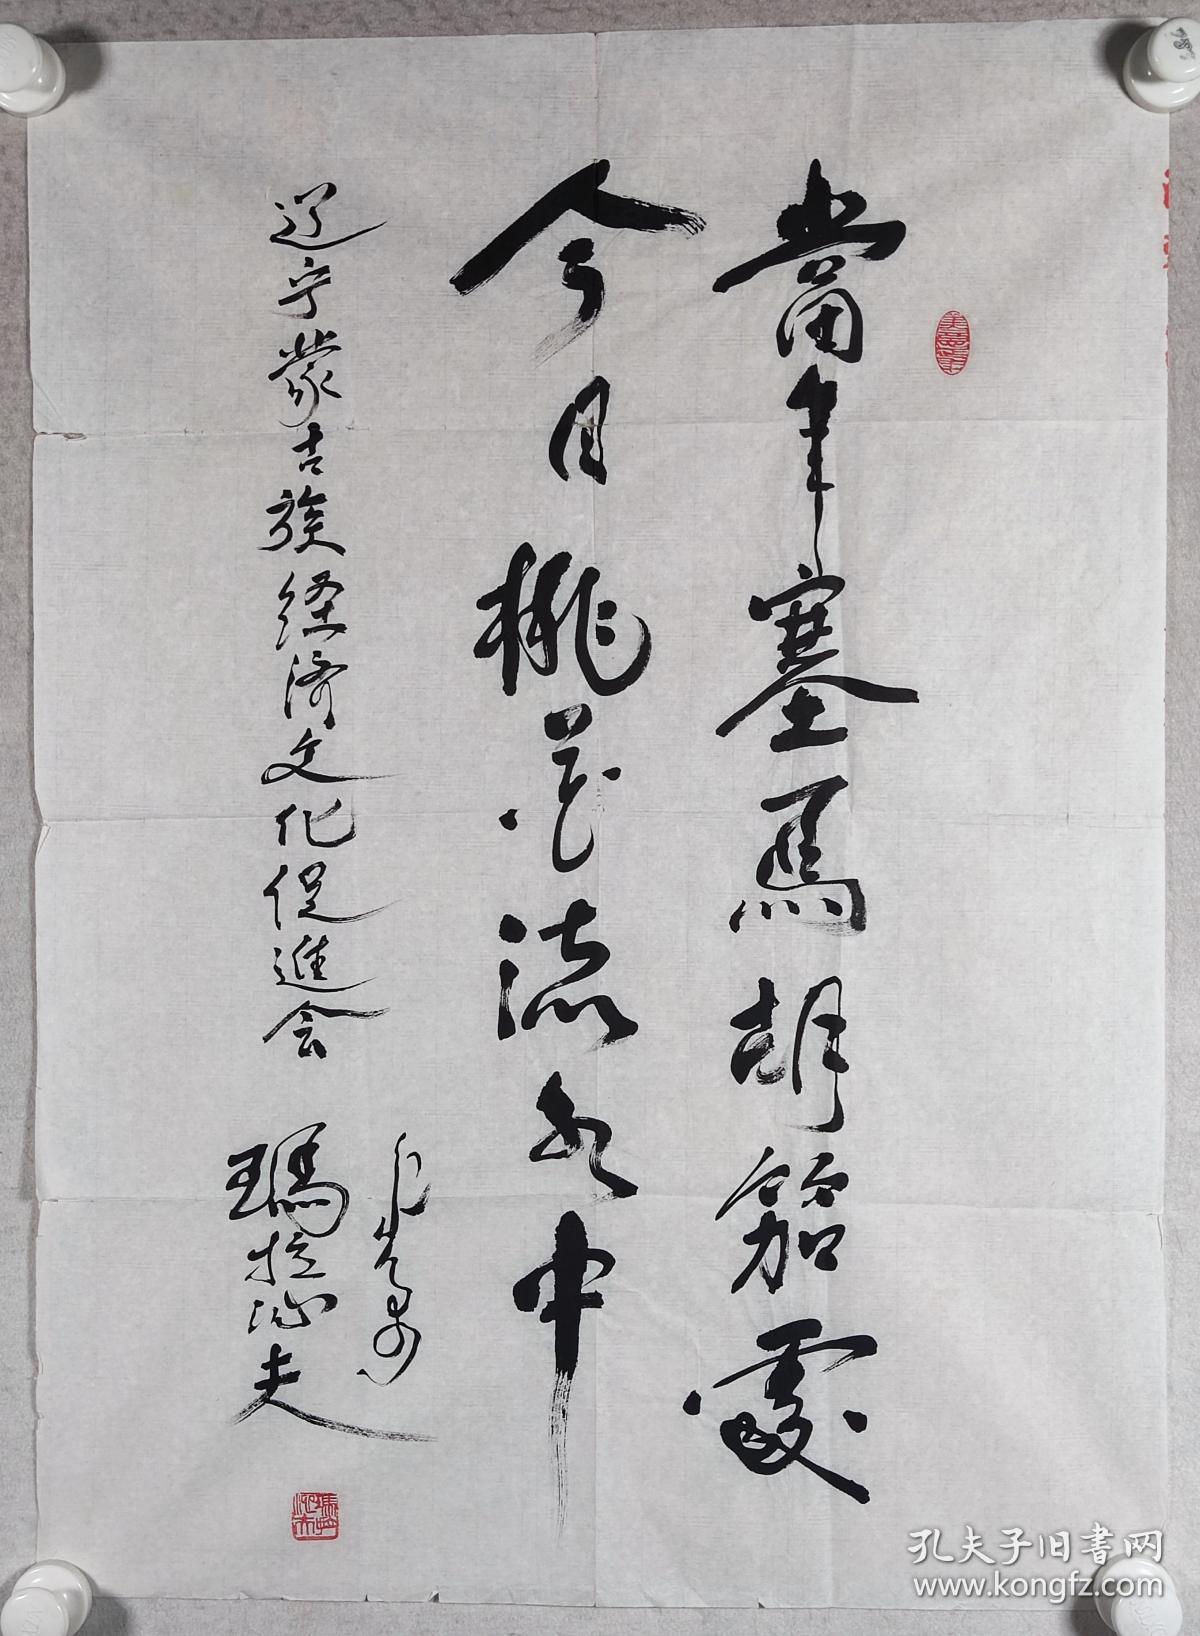 當年塞馬胡笳處
今日桃花流水中
辽宁蒙古族经济文化促進会
瑪拉沁夫
孔夫子旧書网
www.kongfz.com